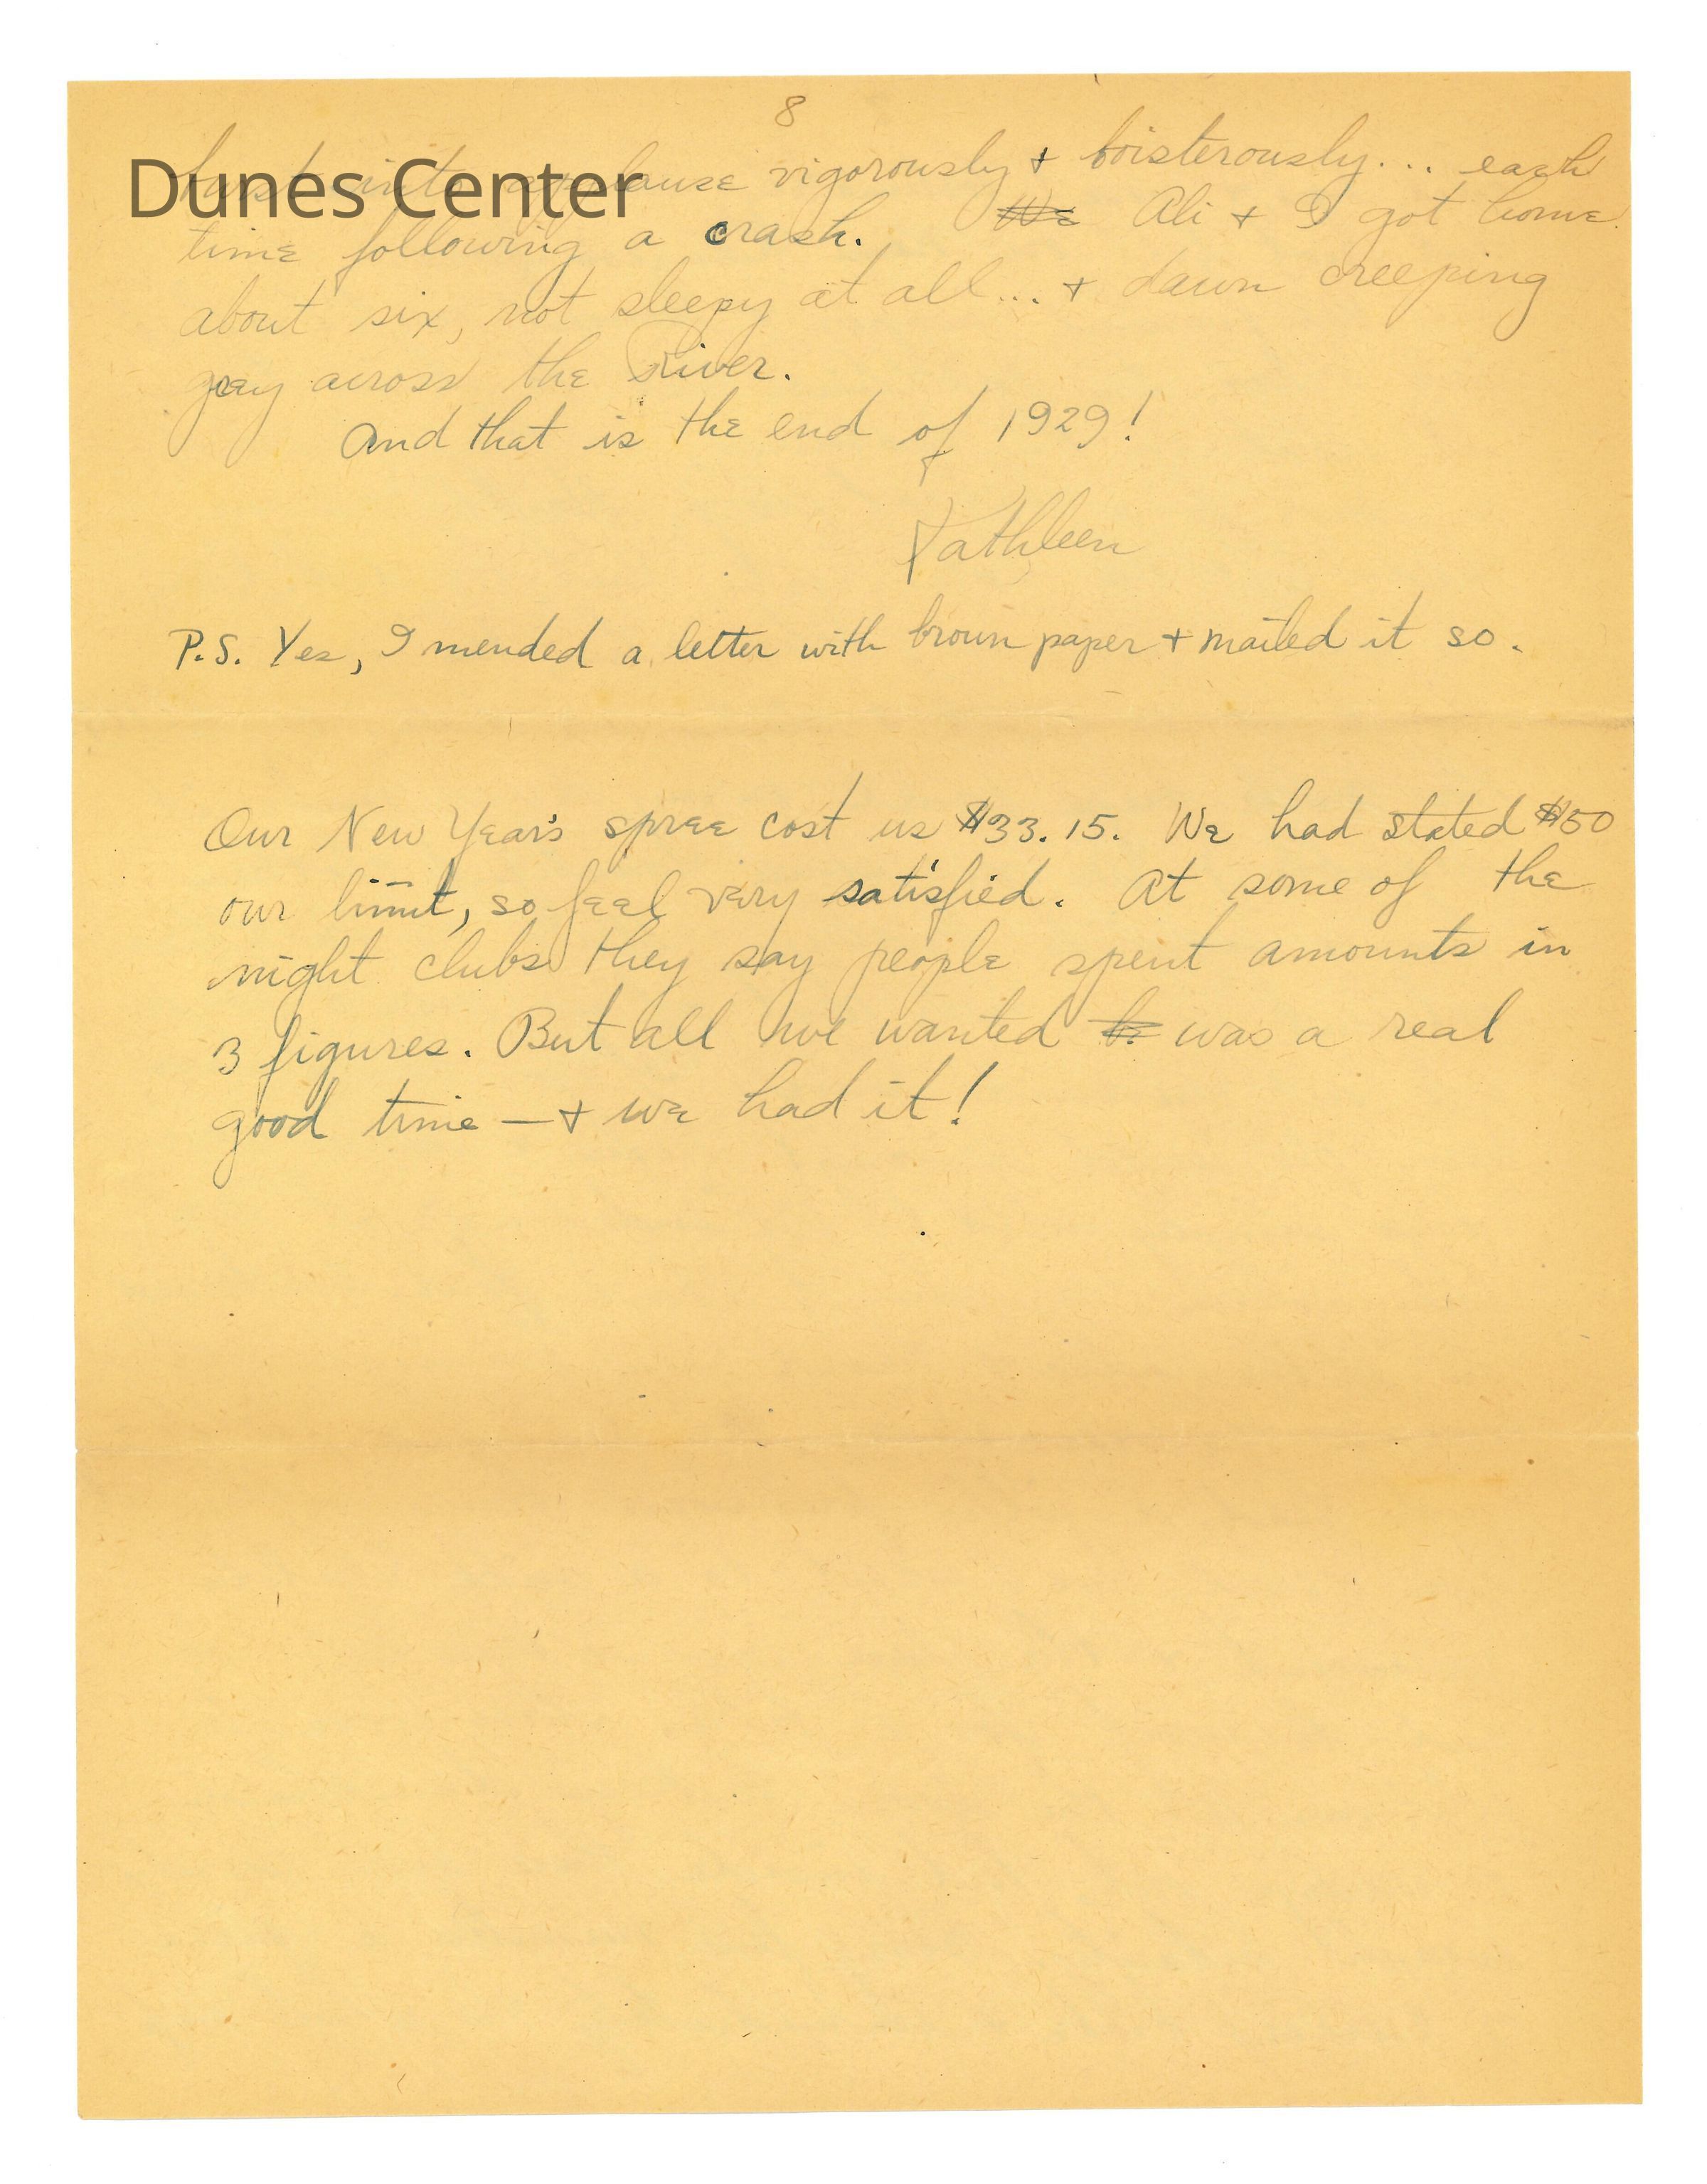 8
Dunes Center
burst into applause vigorously + boisterously... each
time following a crash. We Ali + I got home
about six, not sleepy at all... + dawn creeping
grey across the River.
And that is the end of 1929!
Kathleen
P.S. Yes, I mended a letter with brown paper + mailed it so.
Our New Year's spree cost us $33.15. We had stated $50
our limit, so feel very satisfied. At some of the
night clubs they say people spent amounts in
3 figures. But all we wanted was a real
good time — + we had it!